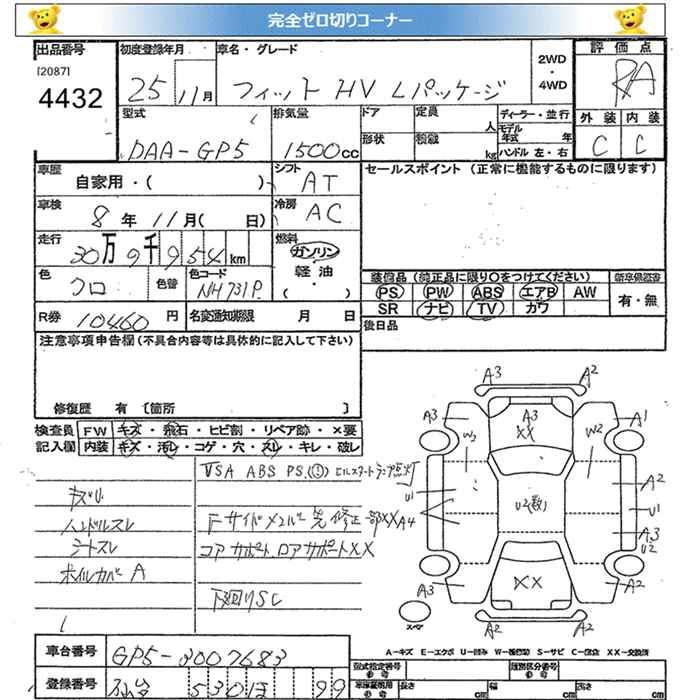 完全ゼロ切りコーナー
出品番号 初度登録年月 車名・グレード 2WD・4WD 評価点
[2087]
4432 25 11月 フィット HV Lパッケージ RA
型式 排気量 ドア 定員 人 ディーラー・並行 外装 内装
DAA-GP5 1500cc 形状 積載 kg モデル年式 年 ハンドル 左・右 C C
車歴 自家用・( ) シフト AT セールスポイント (正常に機能するものに限ります)
車検 8年 11月( 日) 冷房 AC
走行 30万9千954km 燃料 ガソリン 軽油・( )
色 クロ 色替 色コード NH731P 装備品 (純正品に限り〇をつけてください) 新車保証書
PS PW ABS エアB AW 有・無
R券 10460円 名変通知期限 月 日 SR ナビ TV カワ
後日品
注意事項申告欄(不具合内容等は具体的に記入して下さい)
修復歴 有 〔箇所 〕
検査員 FW キズ・飛石・ヒビ割・リペア跡・×要
記入欄 内装 キズ・汚レ・コゲ・穴・スレ・キレ・破レ
VSA ABS PS (!) ヒルスタートランプ点灯
キズU
ハンドルスレ Fサイドメンバー 先 修正 一部XX
シートスレ コアサポート ロアサポートXX
ホイルカバーA
下回りSC
A3 A2
A3 A3 XX A1
W2 W2
U1 A2
U2(数) U1
A4 A3 U2
A3 XX A2
スペア A2 A2
A-キズ E-エクボ U-凹み W-補修跡 S-サビ C-腐食 XX-交換済
車台番号 GP5-3007683 型式指定番号 類別区分番号
登録番号 仙台 530 ほ 99 長さ cm 幅 cm 高さ cm